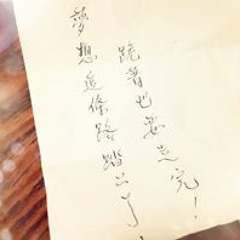 夢想這條路踏上了
跪着也要走完！